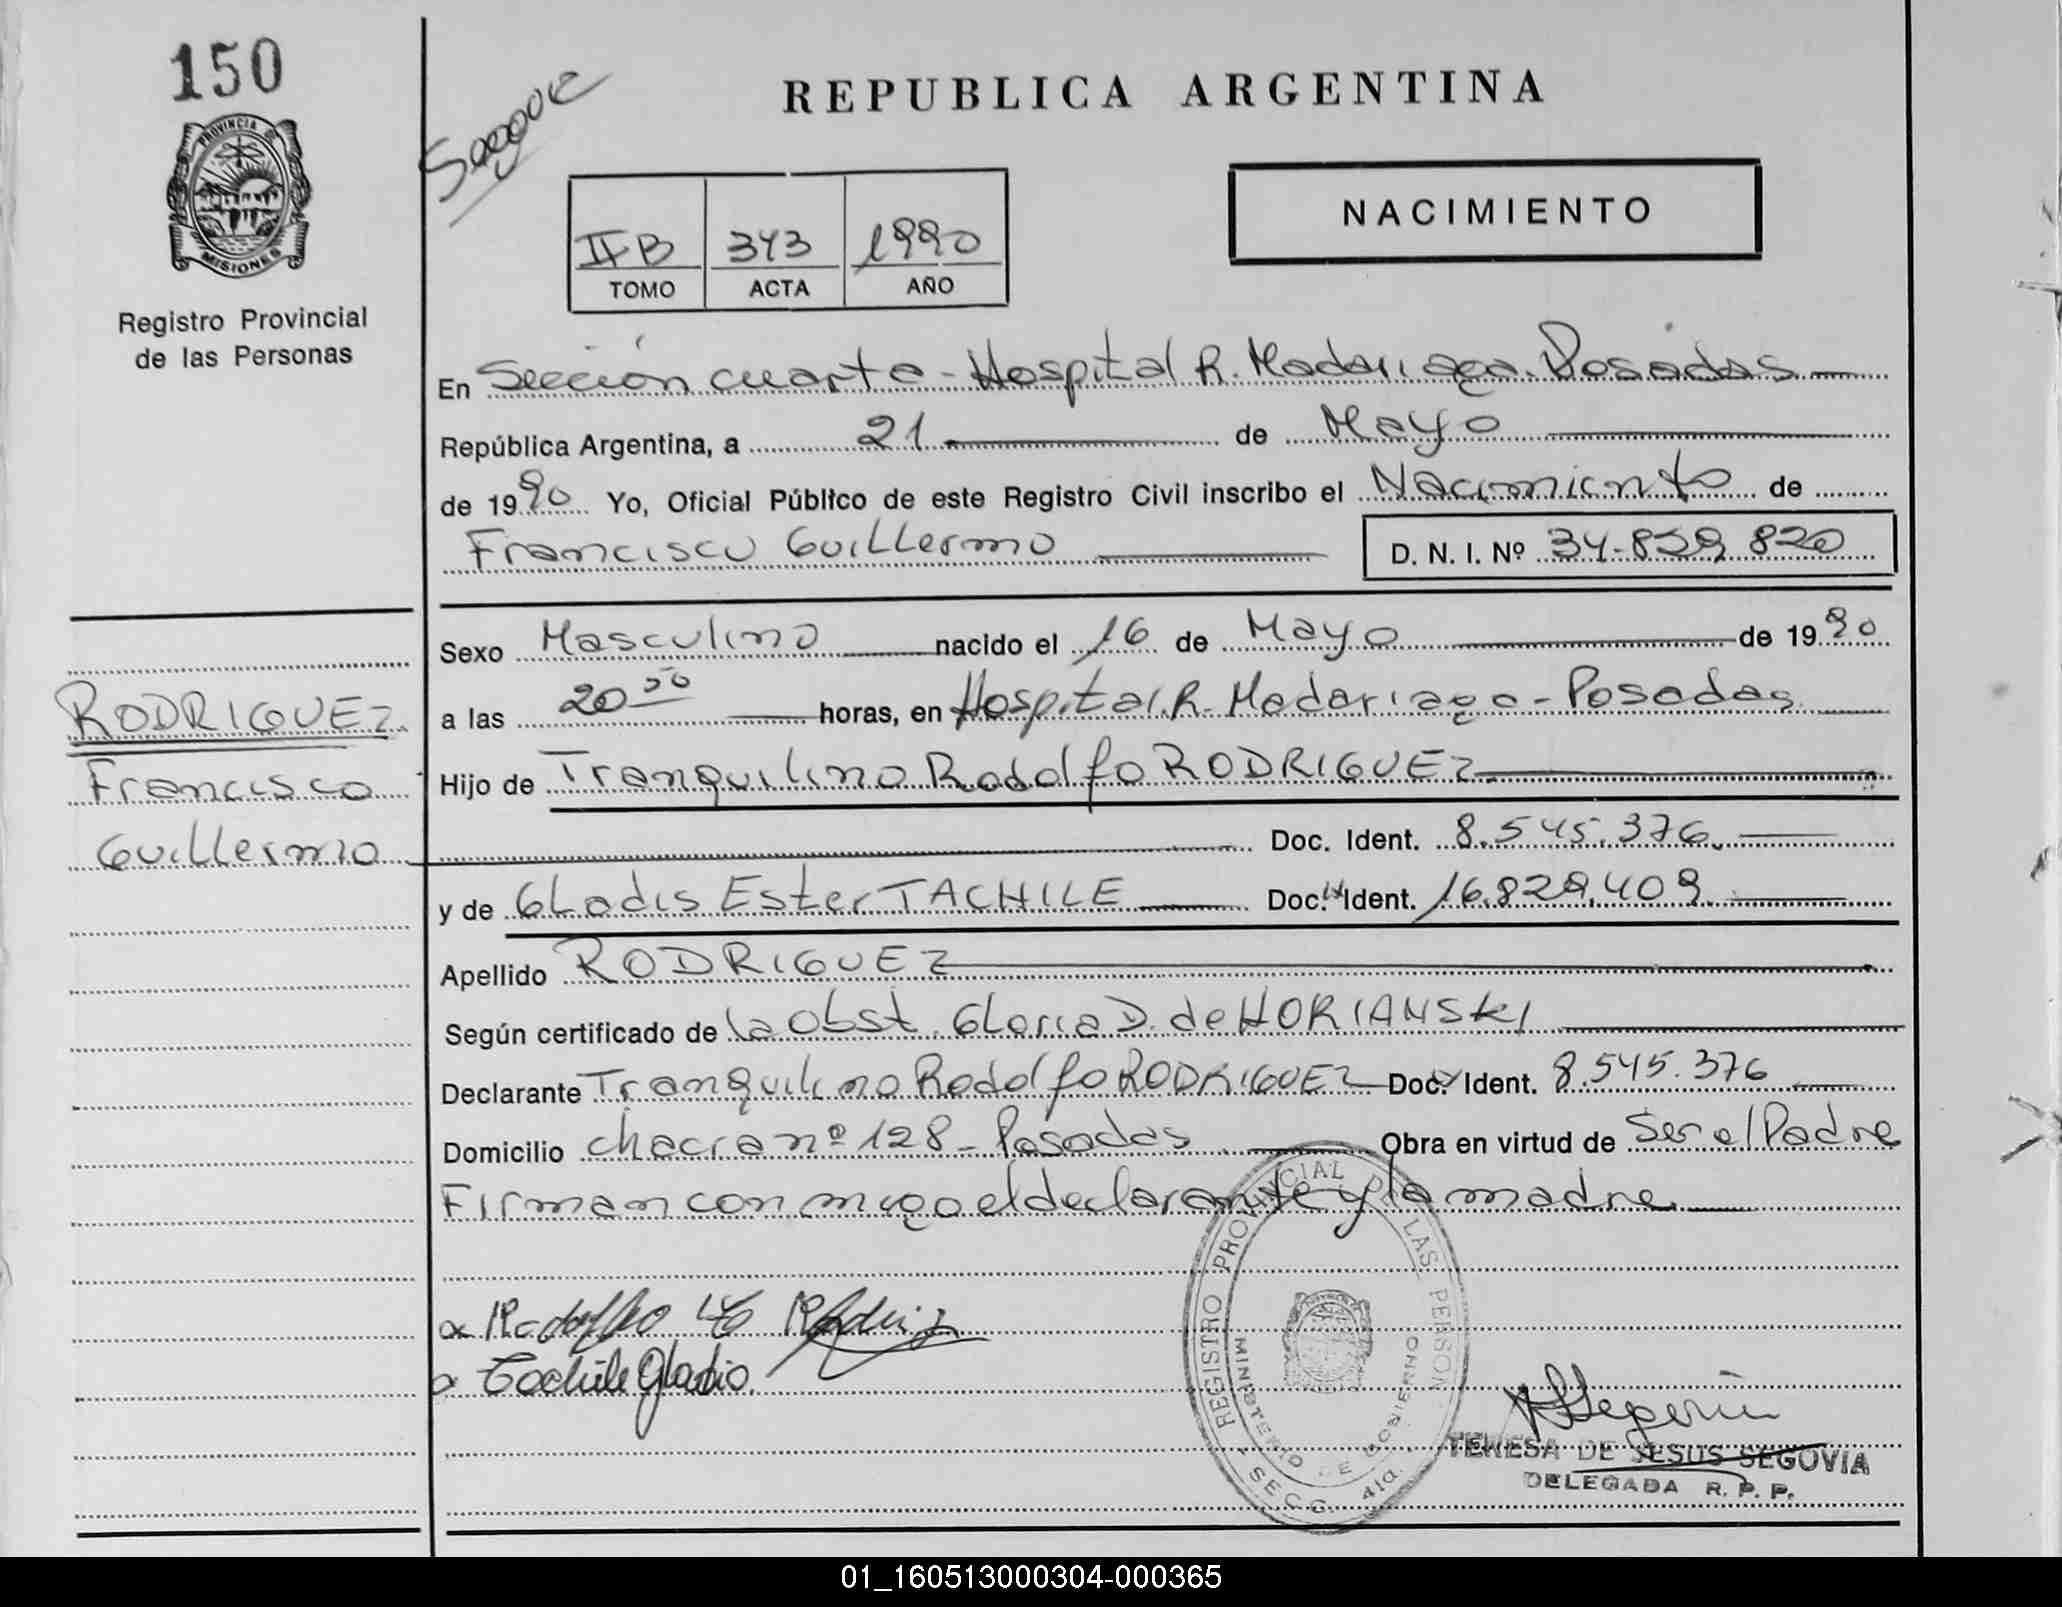 150
PROVINCIA DE
MISIONES
Registro Provincial
de las Personas
REPUBLICA ARGENTINA
NACIMIENTO
II B 343 1990
TOMO ACTA AÑO
En Sección cuarta - Hospital R. Madariaga. Posadas
República Argentina, a 21 de Mayo
de 1990 Yo, Oficial Público de este Registro Civil inscribo el Nacimiento de
Francisco Guillermo D. N. I. Nº 34.859 820
Sexo Masculino nacido el 16 de Mayo de 1990
a las 20 horas, en Hospital R. Madariaga - Posadas
Hijo de Tranquilino Rodolfo RODRIGUEZ
Doc. Ident. 8.545.376.
y de Gladis Ester TACHILE Doc. Ident. 16.829.409.
Apellido RODRIGUEZ
Según certificado de la Obst. Gloria D. de HORIANSKI
Declarante Tranquilino Rodolfo RODRIGUEZ Doc. Ident. 8.545.376
Domicilio chacra nº 128 - Posadas Obra en virtud de Ser el Padre
Firman conmigo el declarante y la madre
RODRIGUEZ
Francisco
Guillermo
Tachile Gladis
REGISTRO PROVINCIAL DE LAS PERSON
MINISTERIO DE GOBIERNO
SECC. 4ta.
TERESA DE JESUS SEGOVIA
DELEGADA R. P. P.
01_160513000304-000365